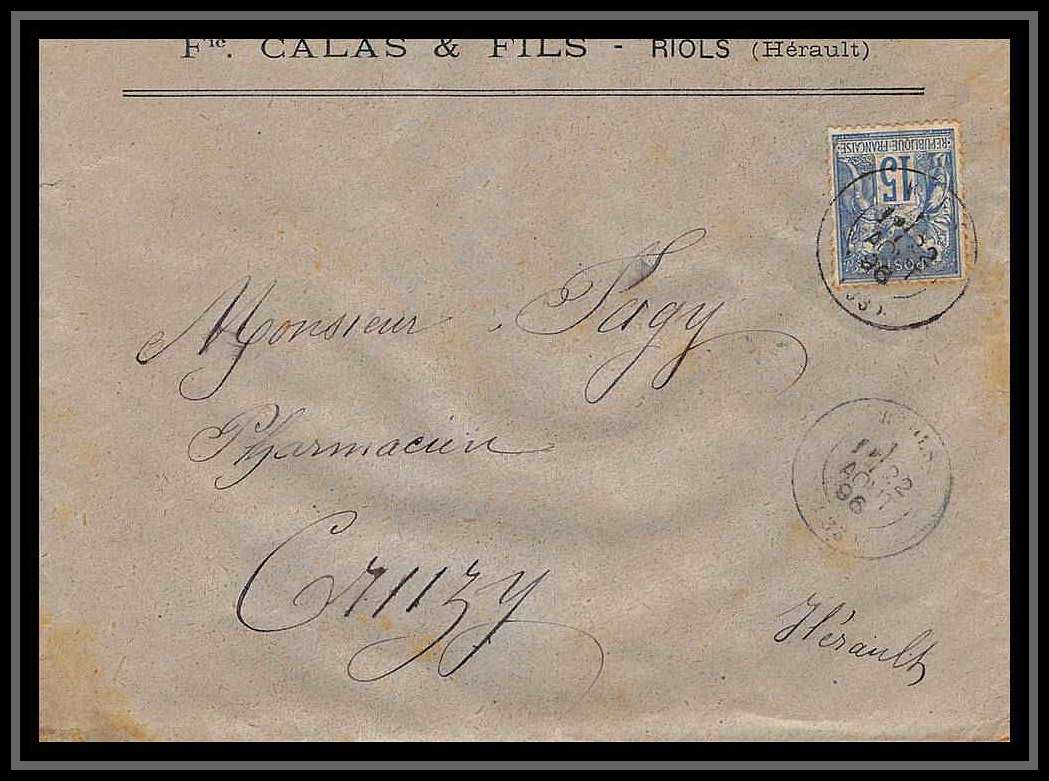 Fie. CALAS & FILS - RIOLS (Hérault)
REPUBLIQUE FRANCAISE
15
22
AOUT
96
Monsieur Pagy
Pharmacien
22
AOUT
96
Cruzy
Hérault